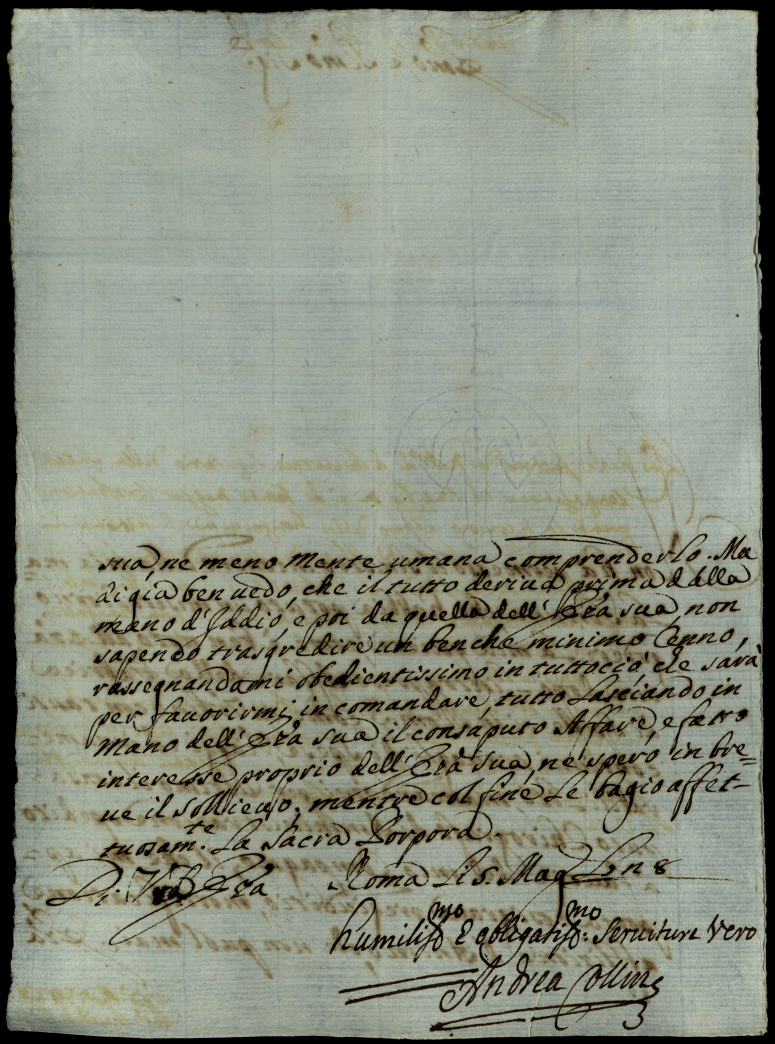 sua, ne meno mente umana comprenderlo. Ma
di già ben uedo, che il tutto deriua prima dalla
mano d'Iddio, e poi da quella dell' Eza sua, non
sapendo trasgredire un benche minimo Cenno,
rassegnandomi obedientissimo in tuttociò che sarà
per fauorirmi in comandare, tutto Lasciando in
Mano dell' Eza sua il consaputo Affare, e fatto
interesse proprio dell' Eza sua, ne sperò in bre=
ue il solleuo, mentre col fine Le bagio affet-
tuosam.te La Sacra Porpora.
Di V. Eza Roma Li 5. Mag
humiliss.mo E obligatiss.mo Seruitore Vero
Andrea Collin